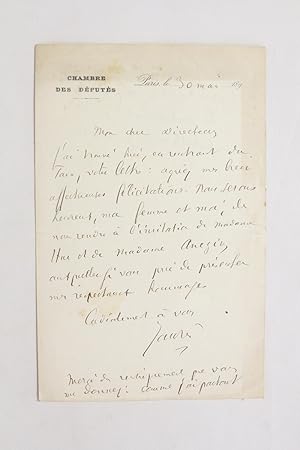 CHAMBRE
DES DÉPUTÉS
Paris, le 30 mai 189
Mon cher Directeur
J'ai trouvé hier, en rentrant du
Tarn, votre lettre : agréez mes bien
affectueuses félicitations. Nous serons
heureux, ma femme et moi, de
nous rendre à l'invitation de madame
et de madame
auxquelles je vous prie de présenter
mes respectueux hommages
Cordialement à vous
Jaurès
Merci du renseignement que vous
me donnez : comme j'ai partout